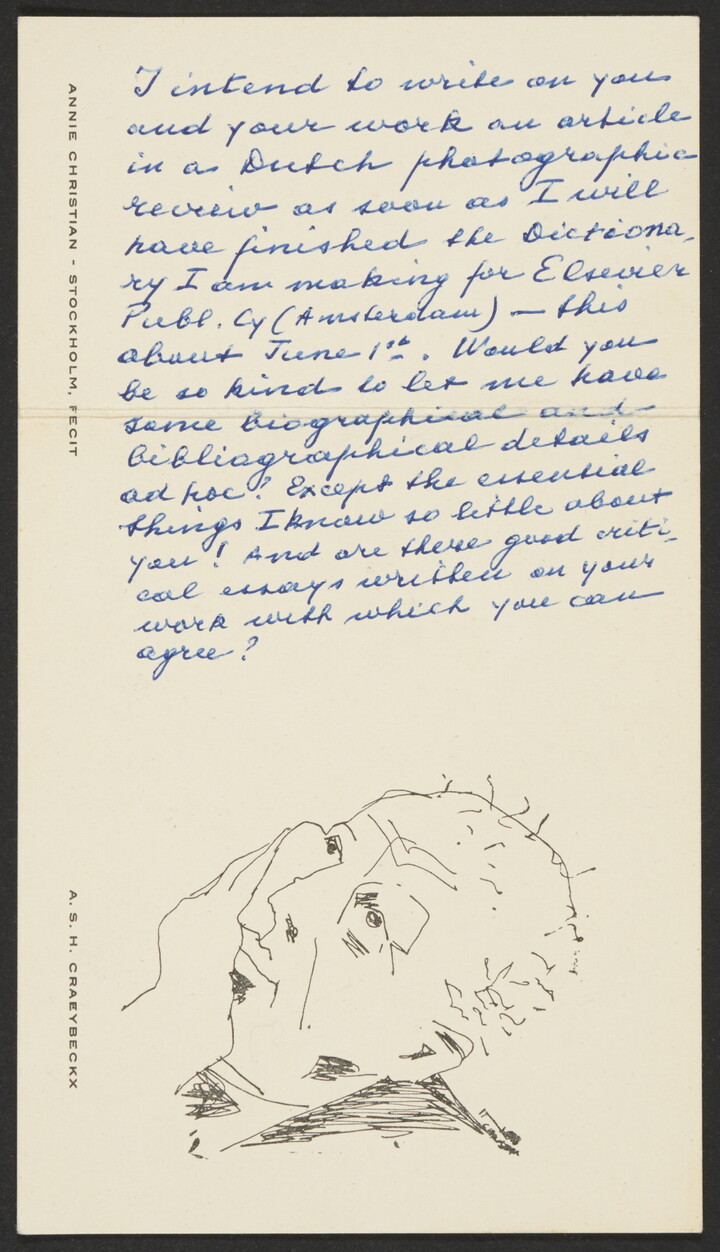 I intend to write on you
and your work an article
in a Dutch photographic
review as soon as I will
have finished the Dictiona-
ry I am making for Elsevier
Publ. Cy (Amsterdam) — this
about June 1st. Would you
be so kind to let me have
some biographical and
bibliographical details
ad hoc? Except the essential
things I know so little about
you! And are there good criti-
cal essays written on your
work with which you can
agree?
ANNIE CHRISTIAN - STOCKHOLM, FECIT
A. S. H. CRAEYBECKX